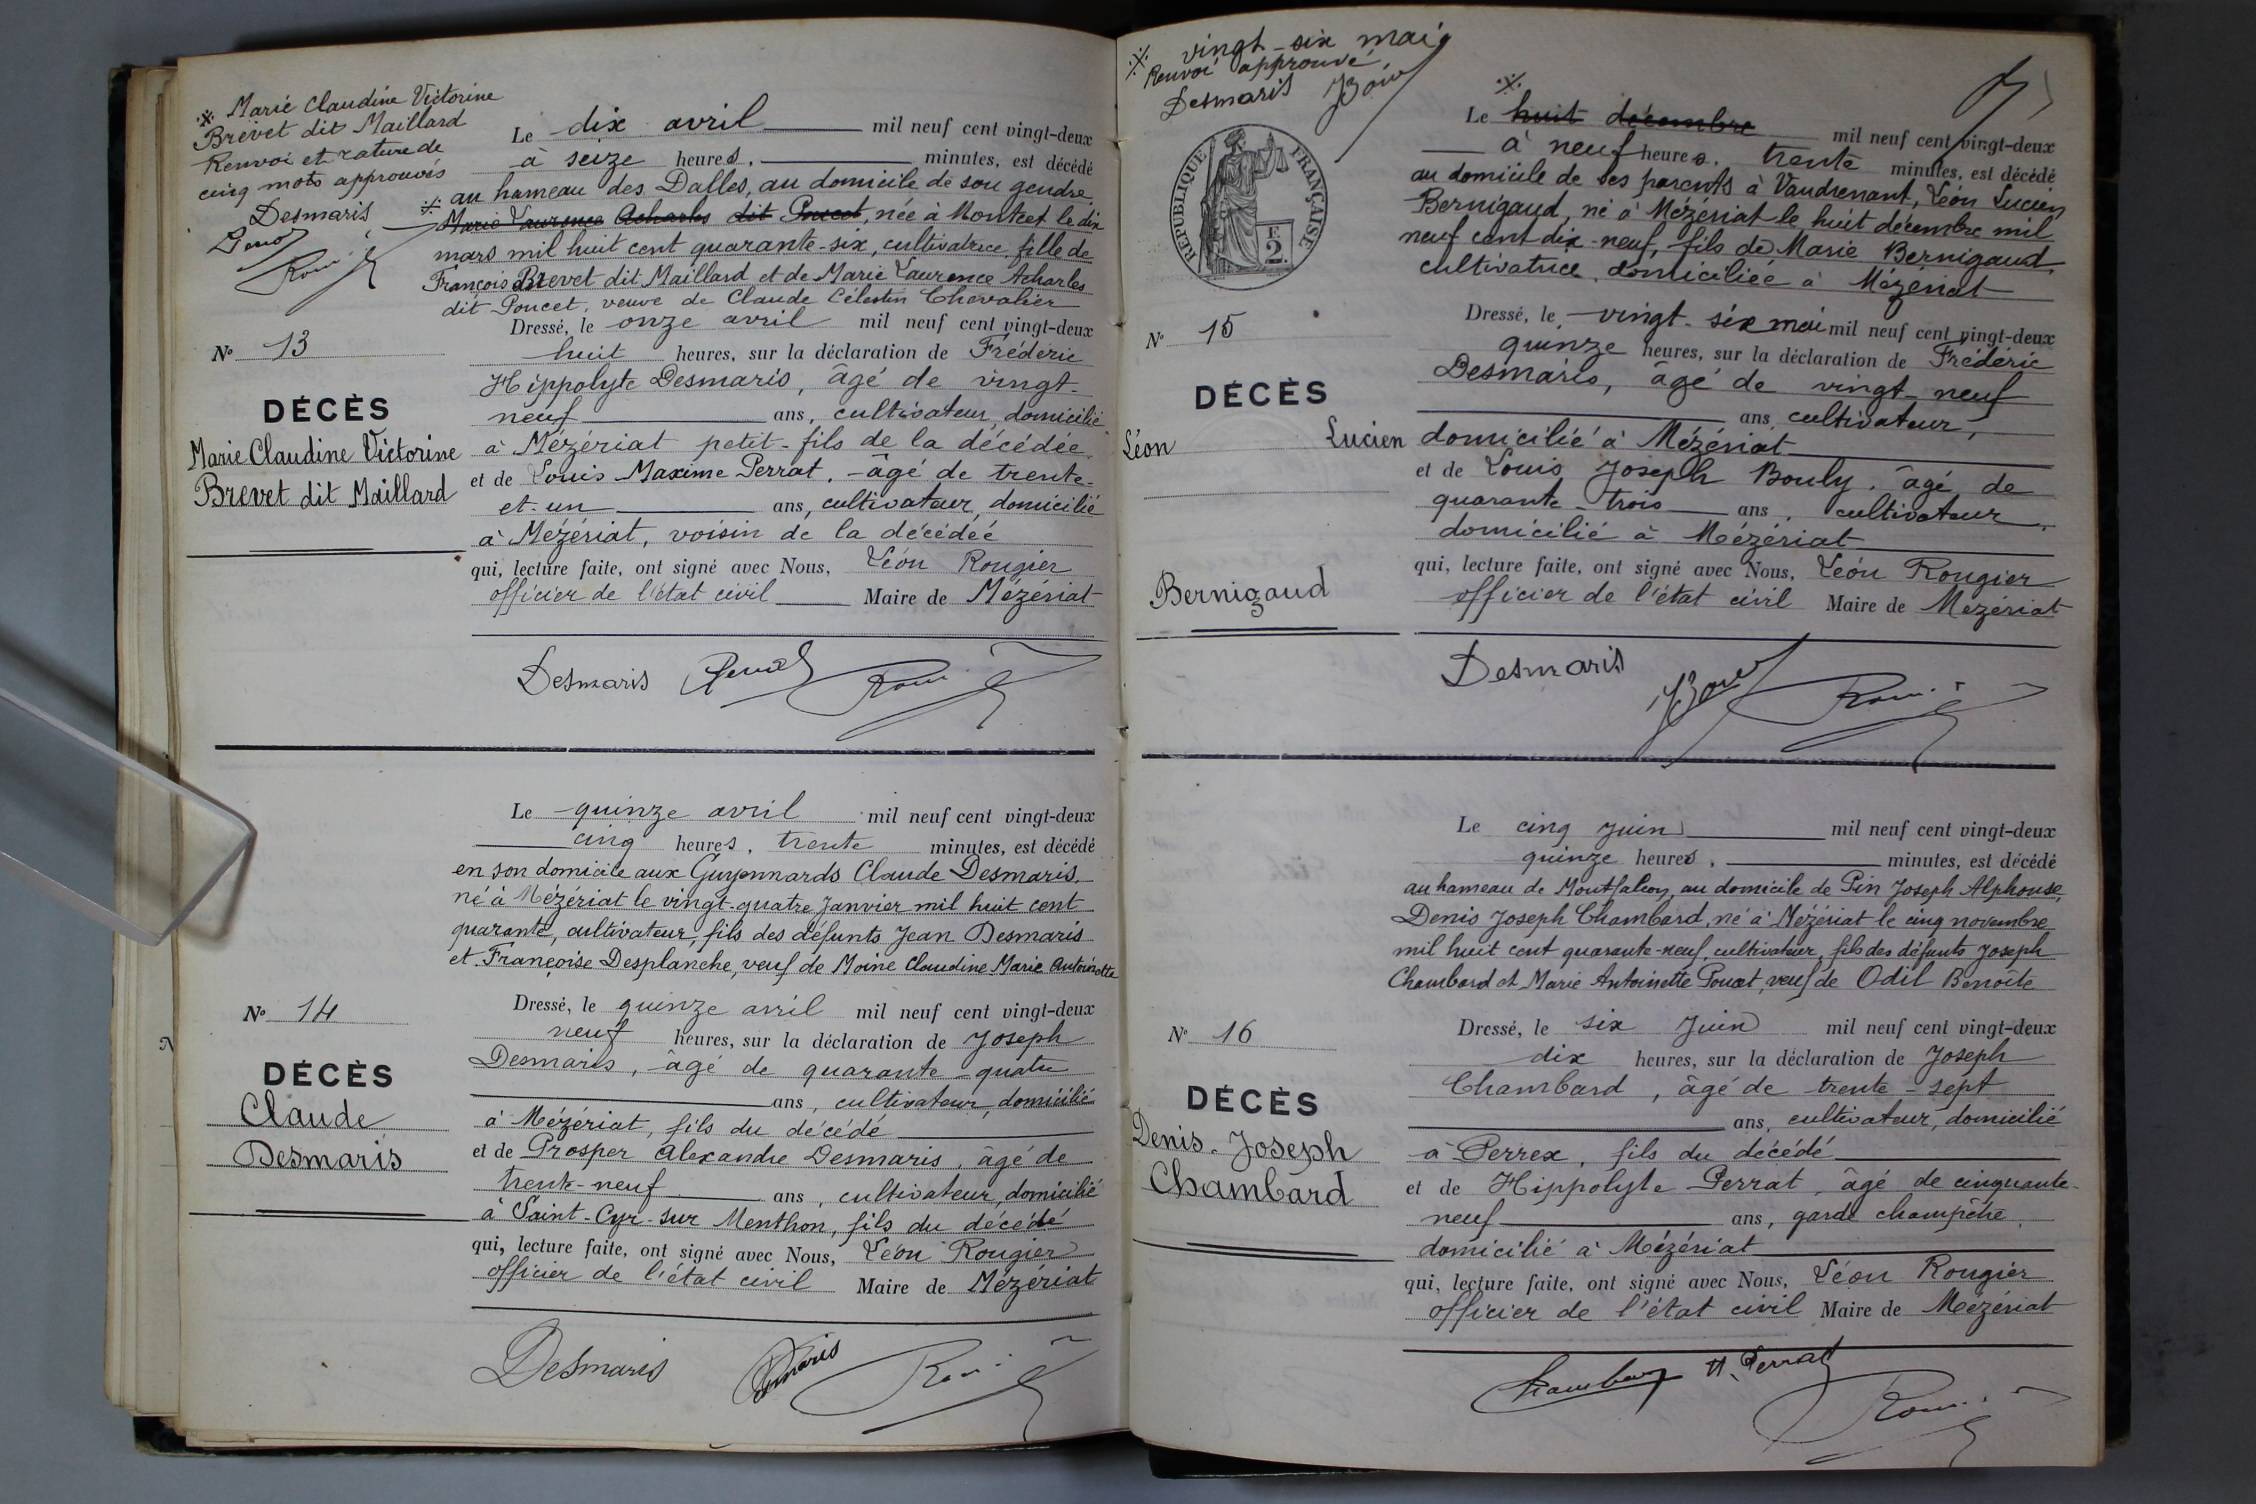 ※ Marie Claudine Victorine
Brevet dit Maillard
Renvoi et rature de
cinq mots approuvés
Desmaris
Le dix avril mil neuf cent vingt-deux
à seize heures, minutes, est décédé
au hameau des Dalles, au domicile de son gendre,
※ Marie Laurence Acharles dit Poucet, née à Montcet le dix
mars mil huit cent quarante-six, cultivatrice, fille de
François Brevet dit Maillard et de Marie Laurence Acharles
dit Poucet, veuve de Claude Célestin Chevalier
Dressé, le onze avril mil neuf cent vingt-deux
huit heures, sur la déclaration de Fréderic
Hippolyte Desmaris, âgé de vingt-
neuf ans, cultivateur, domicilié
à Mézériat petit-fils de la décédée
et de Louis Maxime Perrat, âgé de trente-
et-un ans, cultivateur, domicilié
à Mézériat, voisin de la décédée
qui, lecture faite, ont signé avec Nous, Léon Rougier
officier de l'état civil Maire de Mézériat
Nº 13
DÉCÈS
Marie Claudine Victorine
Brevet dit Maillard
Desmaris
Le quinze avril mil neuf cent vingt-deux
cinq heures, trente minutes, est décédé
en son domicile aux Guyennards Claude Desmaris,
né à Mézériat le vingt-quatre Janvier mil huit cent
quarante, cultivateur, fils des défunts Jean Desmaris
et Françoise Desplanche, veuf de Moine Claudine Marie Antoinette
Dressé, le quinze avril mil neuf cent vingt-deux
neuf heures, sur la déclaration de Joseph
Desmaris, âgé de quarante-quatre
ans, cultivateur, domicilié
à Mézériat, fils du décédé
et de Prosper Alexandre Desmaris, âgé de
trente-neuf ans, cultivateur, domicilié
à Saint-Cyr-sur Menthon, fils du décédé
qui, lecture faite, ont signé avec Nous, Léon Rougier
officier de l'état civil Maire de Mézériat
Nº 14
DÉCÈS
Claude
Desmaris
Desmaris
※ vingt-six mai
Renvoi approuvé
Desmaris
RÉPUBLIQUE FRANÇAISE
F.
2.
※
Le huit décembre mil neuf cent vingt-deux
à neuf heures, trente minutes, est décédé
au domicile de ses parents à Vaudrenant, Léon Lucien
Bernigaud, né à Mézériat le huit décembre mil
neuf cent dix-neuf, fils de Marie Bernigaud,
cultivatrice, domiciliée à Mézériat
Dressé, le vingt-six mai mil neuf cent vingt-deux
quinze heures, sur la déclaration de Fréderic
Desmaris, âgé de vingt-neuf
ans, cultivateur,
domicilié à Mézériat
et de Louis Joseph Bouly, âgé de
quarante-trois ans, cultivateur,
domicilié à Mézériat
qui, lecture faite, ont signé avec Nous, Léon Rougier
officier de l'état civil Maire de Mézériat
Nº 15
DÉCÈS
Léon Lucien
Bernigaud
Desmaris
Le cinq Juin mil neuf cent vingt-deux
quinze heures, minutes, est décédé
au hameau de Montfalcon, au domicile de Pin Joseph Alphonse,
Denis Joseph Chambard, né à Mézériat le cinq novembre
mil huit cent quarante-neuf, cultivateur, fils des défunts Joseph
Chambard et Marie Antoinette Poucet, veuf de Odil Benoîte
Dressé, le six Juin mil neuf cent vingt-deux
dix heures, sur la déclaration de Joseph
Chambard, âgé de trente-sept
ans, cultivateur, domicilié
à Perrex, fils du décédé
et de Hippolyte Perrat, âgé de cinquante-
neuf ans, garde champêtre,
domicilié à Mézériat
qui, lecture faite, ont signé avec Nous, Léon Rougier
officier de l'état civil Maire de Mézériat
Nº 16
DÉCÈS
Denis-Joseph
Chambard
Chambard H. Perrat